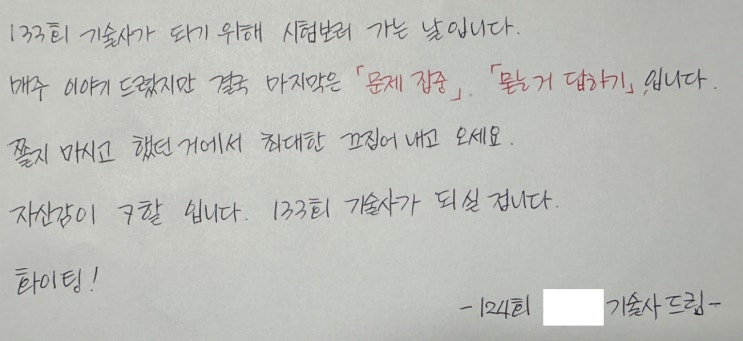 133회 기술사가 되기 위해 시험보러 가는 날입니다.
매주 이야기 드렸지만 결국 마지막은 「문제 집중」, 「묻는거 답하기」입니다.
쫄지 마시고 했던 거에서 최대한 끄집어 내고 오세요.
자신감이 7할 입니다. 133회 기술사가 되실 겁니다.
화이팅!
-124회 기술사 드림-